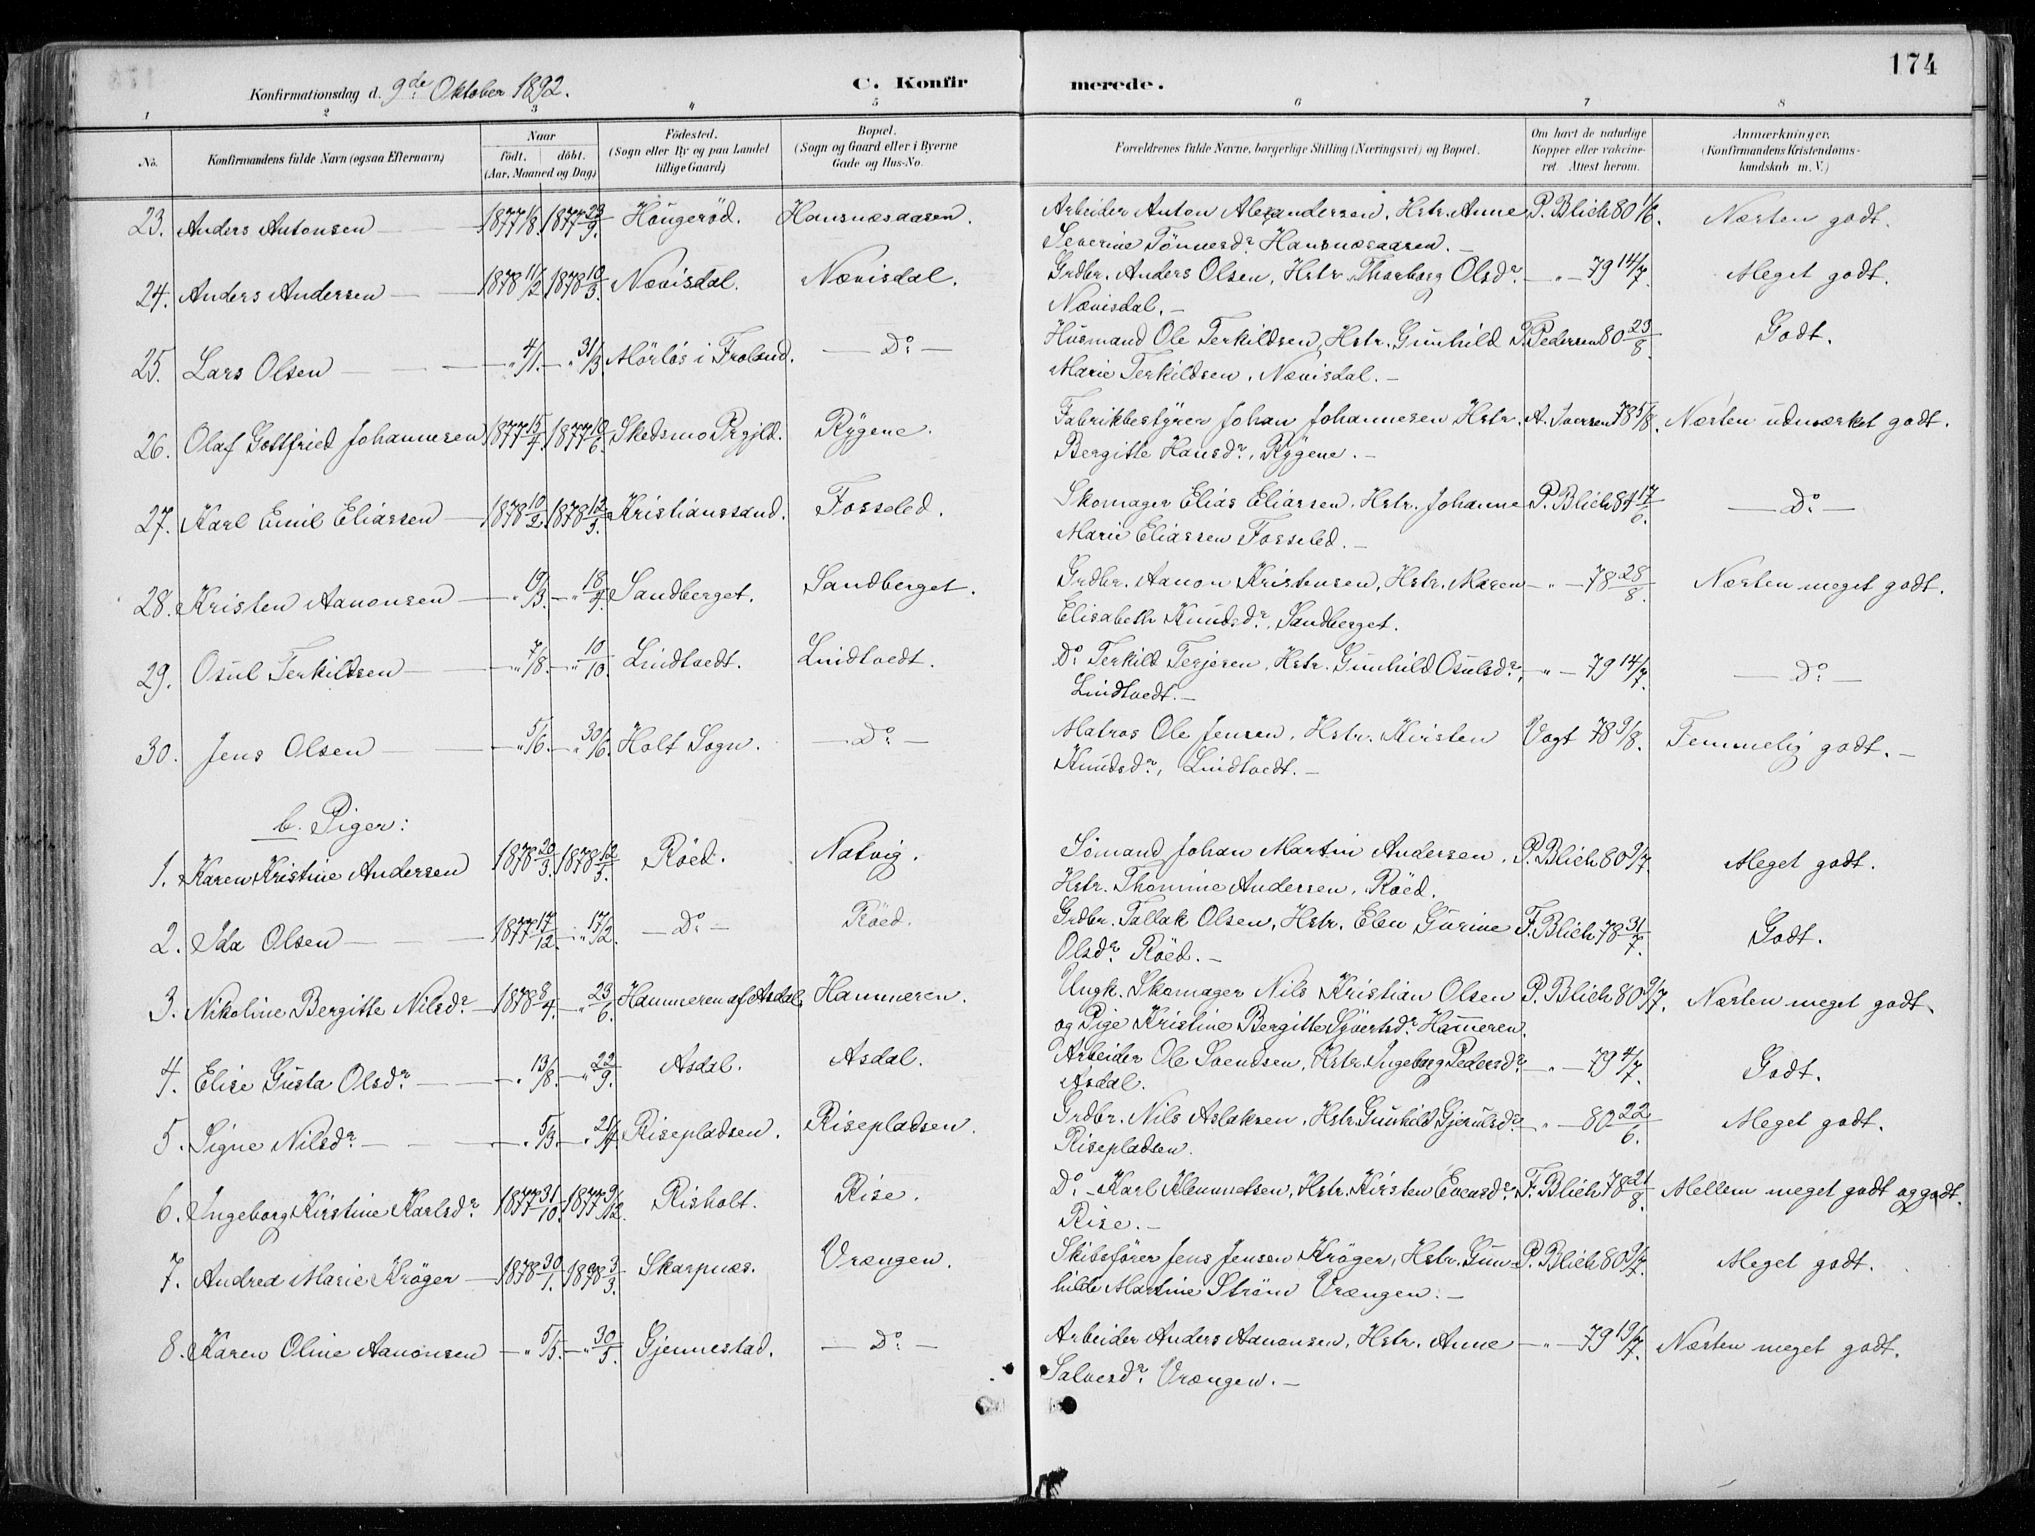 174
Konfirmationsdag d. 9de Oktober 1892.
C. Konfirmerede.
1 2 3 4 5 6 7 8
No. Konfirmandens fulde Navn (ogsaa Efternavn) Naar født. døbt. (Aar, Maaned og Dag) Fødested. (Sogn eller By og paa Landet tillige Gaard) Bopæl. (Sogn og Gaard eller i Byerne Gade og Hus-No. Forældrenes fulde Navne, borgerlige Stilling (Næringsvei) og Bopæl. Om havt de naturlige Kopper eller vakcineret. Attest herom. Anmærkninger. (Konfirmandens Kristendomskundskab m. V.)
23. Anders Antonsen 1877 1/8 1877 23/9. Höugeröd. Hansnæsaasen. Arbeider Anton Alexandersen, Hstr. Anne P. Blich 80 1/6 Næsten godt.
Severine Tönnesdr Hansnæsaasen.
24. Anders Andersen 1878 11/2 1878 10/3. Nævisdal. Nævisdal. Grdbr. Anders Olsen, Hstr Thorborg Olsdr — " — 79 14/7. Meget godt.
Nævisdal. —
25. Lars Olsen — " 4/1. — " 31/3 Mörlös i Froland. — Do — Husmand Ole Terkildsen, Hstr. Gunhild T. Pedersen 80 23/8 Godt.
Marie Terkildsen, Nævisdal. —
26. Olaf Gottfried Johannesen 1877 15/4 1877 10/6. Skedsmo Prgjld. Rygene. Fabrikbestyrer Johan Johannesen Hstr. A. Iversen 78 5/8. Næsten udmærket godt.
Bergitte Hansdr, Rygene. —
27. Karl Emil Eliassen 1878 10/2. 1878 12/5. Kristianssand. Fosseled. Skomager Elias Eliassen, Hstr. Johanne P. Blich 84 17/6. — Do —
Marie Eliassen Fosseled. —
28. Kristen Aanonsen — " 19/3. — " 18/4 Sandberget. Sandberget. Grdbr. Aanon Kristensen, Hstr. Maren — " — 78 28/8. Næsten meget godt.
Elisabeth Knudsdr, Sandberget.
29. Osul Terkildsen — " 7/8. — " 10/10. Lindtvedt. Lindtvedt. Do Terkild Terjesen, Hstr. Gunhild Osulsdr, — " — 79 14/7. — Do —
Lindtvedt. —
30. Jens Olsen — " 5/6. — " 30/6. Holt Sogn. — Do — Matros Ole Jensen, Hstr. Kirsten Vogt 78 9/8. Temmelig godt. —
Knudsdr, Lindtvedt. —
b. Piger:
1. Karen Kristine Andersen 1878 20/3. 1878 12/5. Röed. Natvig. Sömand Johan Martin Andersen, P. Blich 80 9/7. Meget godt.
Hstr. Thomine Andersen, Röed.
2. Ida Olsen 1877 17/12. — " 17/2. — Do — Röed. Grdbr. Tallak Olsen, Hstr. Elen Gurine F. Blich 78 31/7. Godt.
Olsdr Röed. —
3. Nikoline Bergitte Nilsdr 1878 8/4. — " 23/6. Hammeren af Asdal. Hammeren. Ungk. Skomager Nils Kristian Olsen P. Blich 80 9/7. Næsten meget godt.
og Pige Kristine Bergitte Syvertsdr Hammeren.
4. Elise Gusta Olsdr — " 13/8. — " 22/9. Asdal. Asdal. Arbeider Ole Svendsen, Hstr Ingeborg Pedersdr — " — 79 4/7. Godt.
Asdal.
5. Signe Nilsdr — " 5/3. — " 21/4. Risepladsen. Risepladsen. Grdbr. Nils Aslaksen, Hstr Gunhild Gjerulsdr — " — 80 22/6. Meget godt.
Risepladsen.
6. Ingeborg Kirstine Karlsdr 1877 31/10. 1877 9/12. Risholt. Rise. Do — Karl Klemmetsen, Hstr. Kirsten Evensdr F. Blich 78 21/8. Mellem meget godt og godt.
Rise. —
7. Andrea Marie Kröger 1878 30/1. 1878 3/3. Skarpnæs. Vrængen. Skibsfører Jens Jensen Kröger, Hstr. Gun- P. Blich 80 9/7. Meget godt.
hilde Martine Ström Vrængen. —
8. Karen Oline Aanonsen — " 5/5. — " 30/5. Gjennestad. — Do — Arbeider Anders Aanonsen, Hstr. Anne — " — 79 19/7. Næsten meget godt.
Salvesdr Vrængen. —